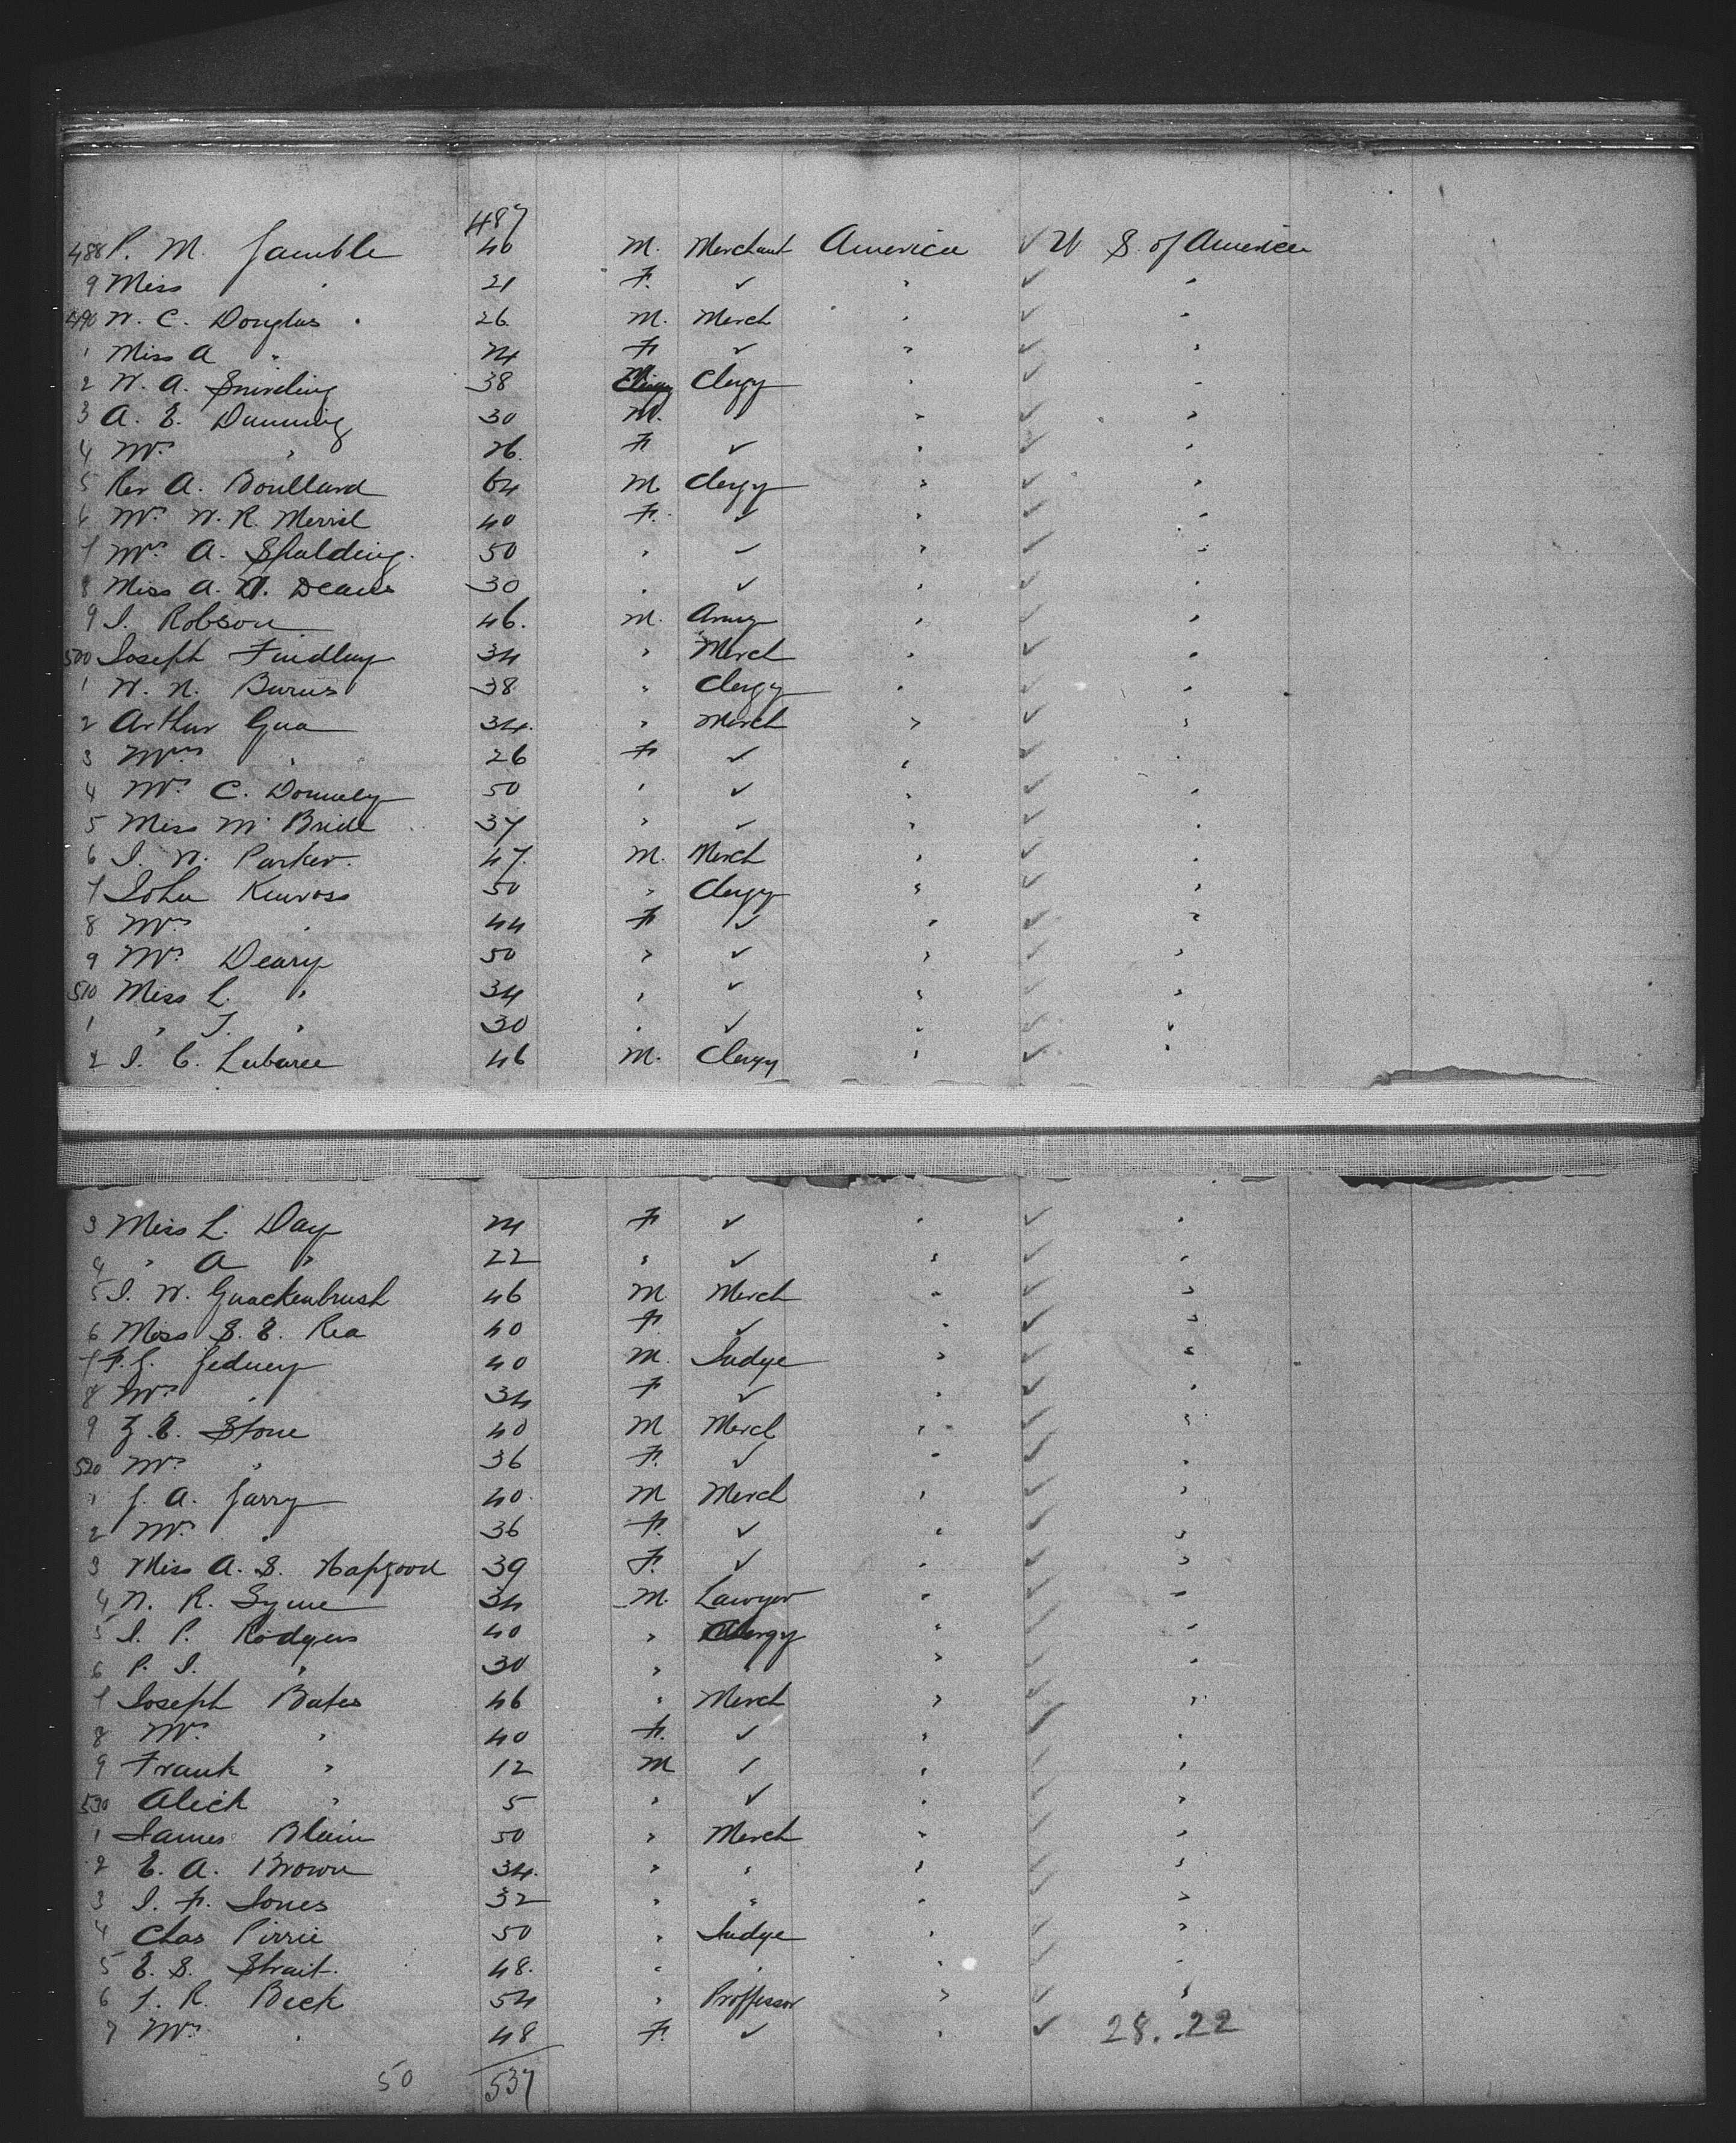 487
488 P. M. Gamble 40 M. Merchant America ✓ U S. of America
9 Miss " 21 F. ✓ " ✓ "
490 W. C. Douglas 26 M. Merch " ✓ "
1 Miss A " 24 F ✓ " ✓ "
2 W. A. 38 Clergy " ✓ "
3 A. E. Dunning 30 M. " " ✓ "
4 Mrs " 26 F ✓ " ✓ "
5 Rev A. Boullard 64 M Clergy " ✓ "
6 Mrs W. R. Merril 40 F. ✓ " ✓ "
7 Mrs A. Spalding. 50 " ✓ " ✓ "
8 Miss A. W. Deane 30 " ✓ " ✓ "
9 J. Robson 46. M. Army " ✓ "
500 Joseph Findlay 34 " Merch " ✓ "
1 W. N. Burns 38 " Clergy " ✓ "
2 Arthur Gua 34. " Merch " ✓ "
3 Mrs " 26 F ✓ " ✓ "
4 Mrs C. Donnely 50 " ✓ " ✓ "
5 Miss Mc Bride 37 " ✓ " ✓ "
6 J. W. Parker. 47. M. Merch " ✓ "
7 John Kinross 50 " Clergy " ✓ "
8 Mrs " 44 F ✓ " ✓ "
9 Mrs Deary 50 " ✓ " ✓ "
510 Miss L. " 34 " ✓ " ✓ "
1 " J. " 30 " ✓ " ✓ "
2 J. C. Labaree 46 M. Clergy " ✓ "
3 Miss L. Day 24 F ✓ " ✓ "
4 " A " 22 " ✓ " ✓ "
5 J. W. Quackenbrush 46 M Merch " ✓ "
6 Miss S. E. Rea 40 F. ✓ " ✓ "
7 F. G. Gedney 40 M. Judge " ✓ "
8 Mrs " 34 F ✓ " ✓ "
9 Z. E. Stone 40 M Merch " ✓ "
520 Mrs " 36 F. ✓ " ✓ "
1 J. A. Garry 40. M Merch " ✓ "
2 Mrs " 36 F. ✓ " ✓ "
3 Miss A. S. Hapgood 39 F. ✓ " ✓ "
4 W. R. Syme 34 M. Lawyer " ✓ "
5 J. P. Rodgers 40 " Clergy " ✓ "
6 P. J. " 30 " " " ✓ "
7 Joseph Bates 46 " Merch " ✓ "
8 Mrs " 40 F. ✓ " ✓ "
9 Frank " 12 M ✓ " ✓ "
530 Alick " 5 " ✓ " ✓ "
1 James Blain 50 " Merch " ✓ "
2 E. A. Brown 34. " " " ✓ "
3 J. F. Jones 32 " " " ✓ "
4 Chas Pirrie 50 " Judge " ✓ "
5 E. S. Strait. 48. " " " ✓ "
6 T. R. Beck 54 " Proffessor " ✓ "
7 Mrs " 48 F. ✓ " ✓ 28..22
50 537